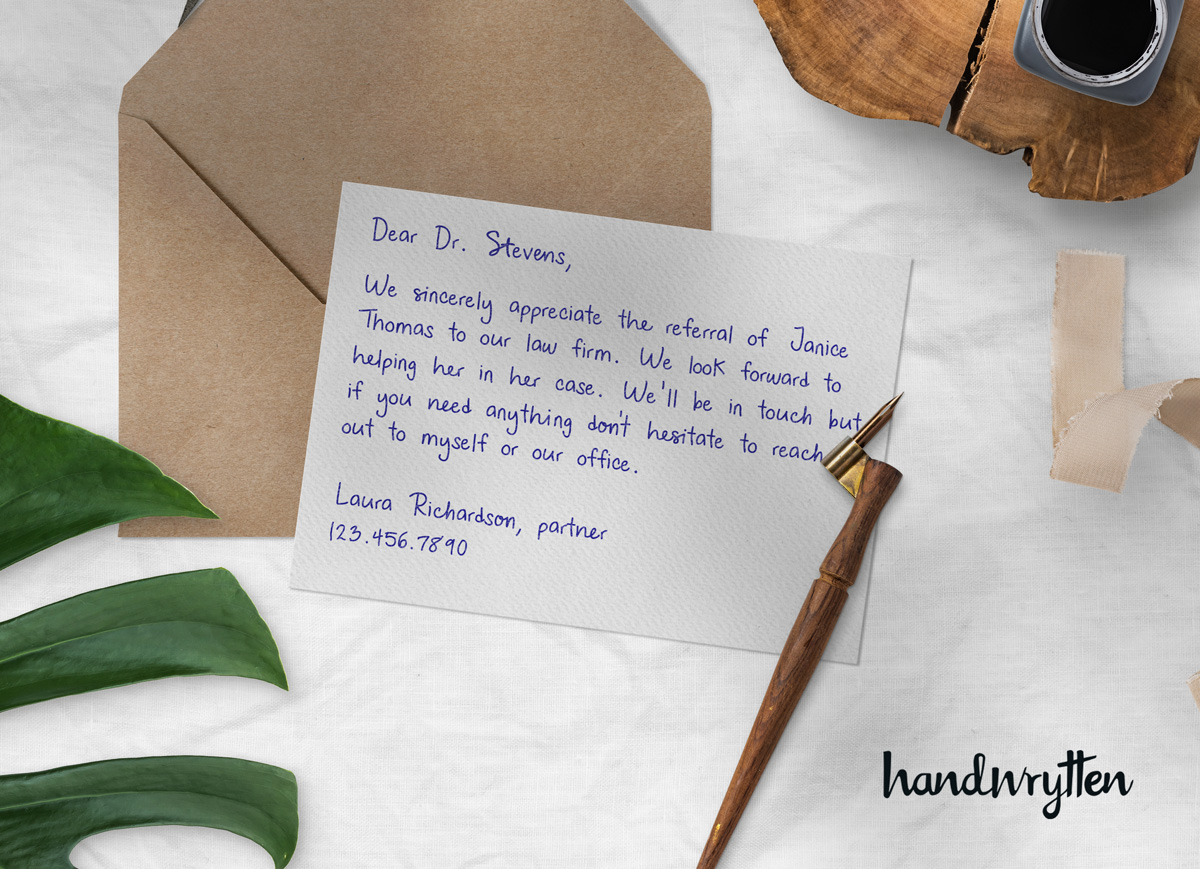 Dear Dr. Stevens,
We sincerely appreciate the referral of Janice
Thomas to our law firm. We look forward to
helping her in her case. We'll be in touch but
if you need anything don't hesitate to reach
out to myself or our office.
Laura Richardson, partner
123.456.7890
handwrytten